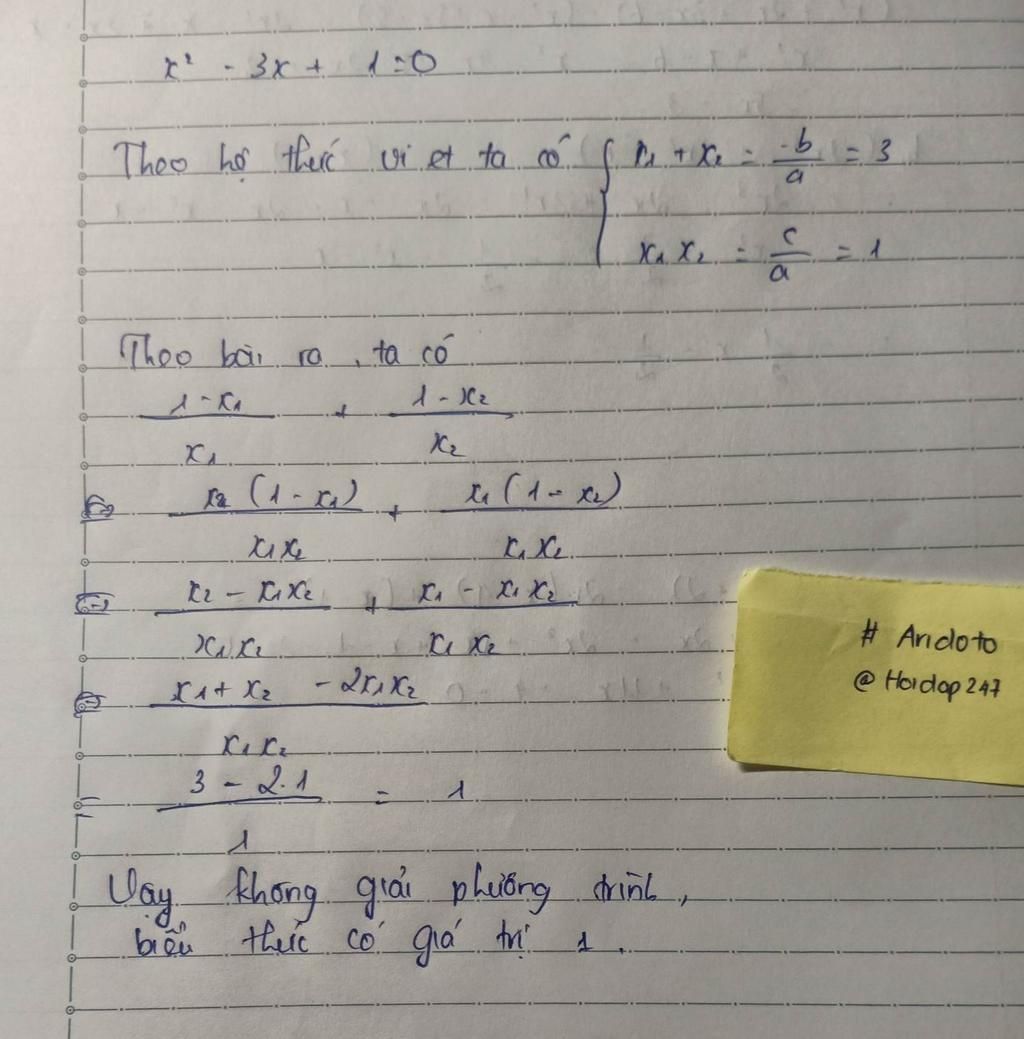 x² - 3x + 1 = 0
Theo hệ thức vi et ta có { x₁ + x₂ = -b/a = 3
x₁ x₂ = c/a = 1
Theo bài ra, ta có
(1 - x₁)/x₁ + (1 - x₂)/x₂
⇔ x₂(1 - x₁)/(x₁x₂) + x₁(1 - x₂)/(x₁x₂)
⇔ (x₂ - x₁x₂)/(x₁x₂) + (x₁ - x₁x₂)/(x₁x₂)
⇔ (x₁ + x₂ - 2x₁x₂)/(x₁x₂)
= (3 - 2.1)/1 = 1
Vạy không giải phương trình,
biểu thức có giá trị 1.
# Andoto
@ Hoidap247